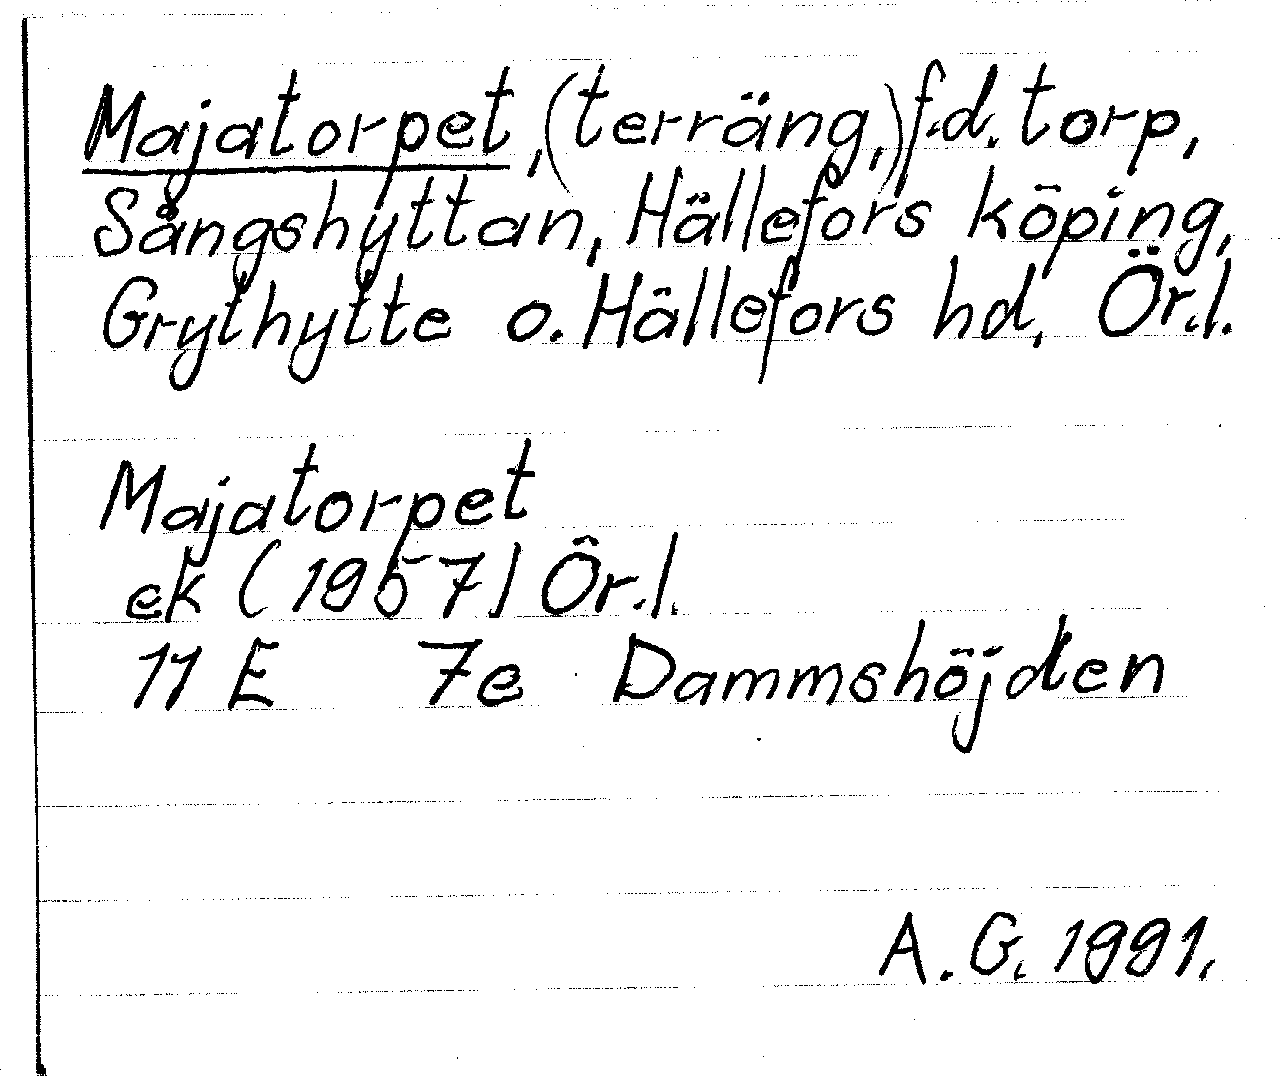 Majatorpet, (terräng,) f.d. torp,
Sångshyttan, Hällefors köping,
Grythytte o. Hällefors hd, Ör.l.
Majatorpet
ek (1957) Ör.l.
11 E 7e Dammshöjden
A.G. 1991.